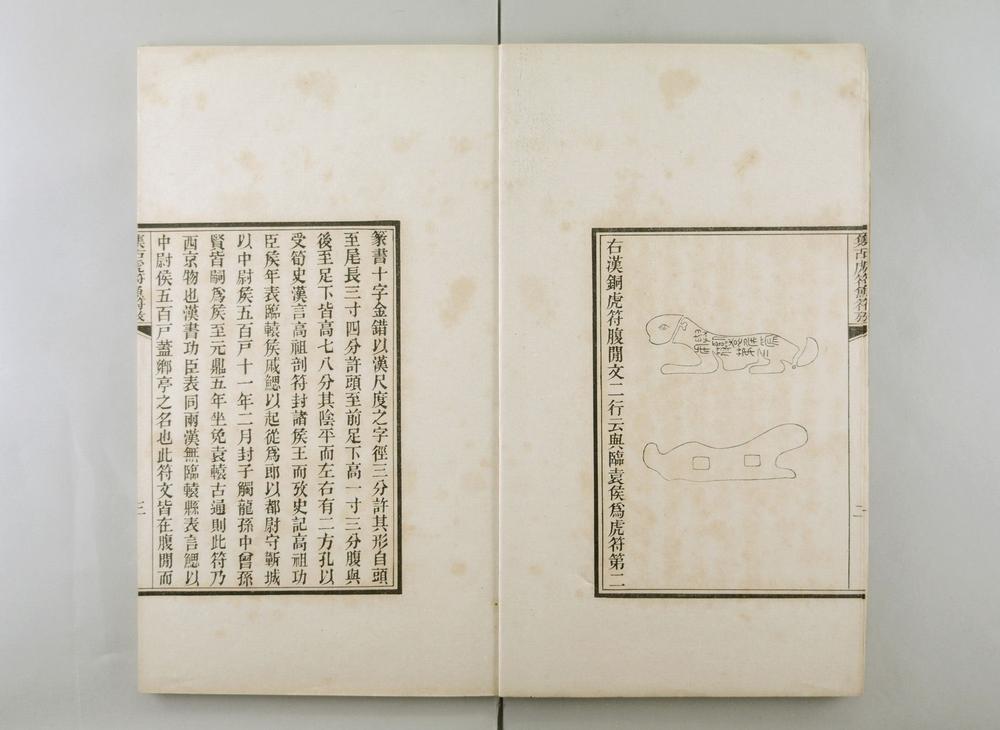 右漢銅虎符腹閒文二行云與臨袁侯爲虎符第二
篆書十字金錯以漢尺度之字徑三分許其形自頭
至尾長三寸四分許頭至前足下高一寸三分腹與
後至足下皆高七八分其陰平而左右有二方孔以
受筍史漢言高祖剖符封諸矦王而攷史記高祖功
臣矦年表臨轅矦戚鰓以起從爲郎以都尉守蘄城
以中尉矦五百戸十一年二月封子觸龍孫中曾孫
賢皆嗣爲矦至元鼎五年坐免袁轅古通則此符乃
西京物也漢書功臣表同兩漢無臨轅縣表言鰓以
中尉侯五百戸蓋鄉亭之名也此符文皆在腹閒而
三